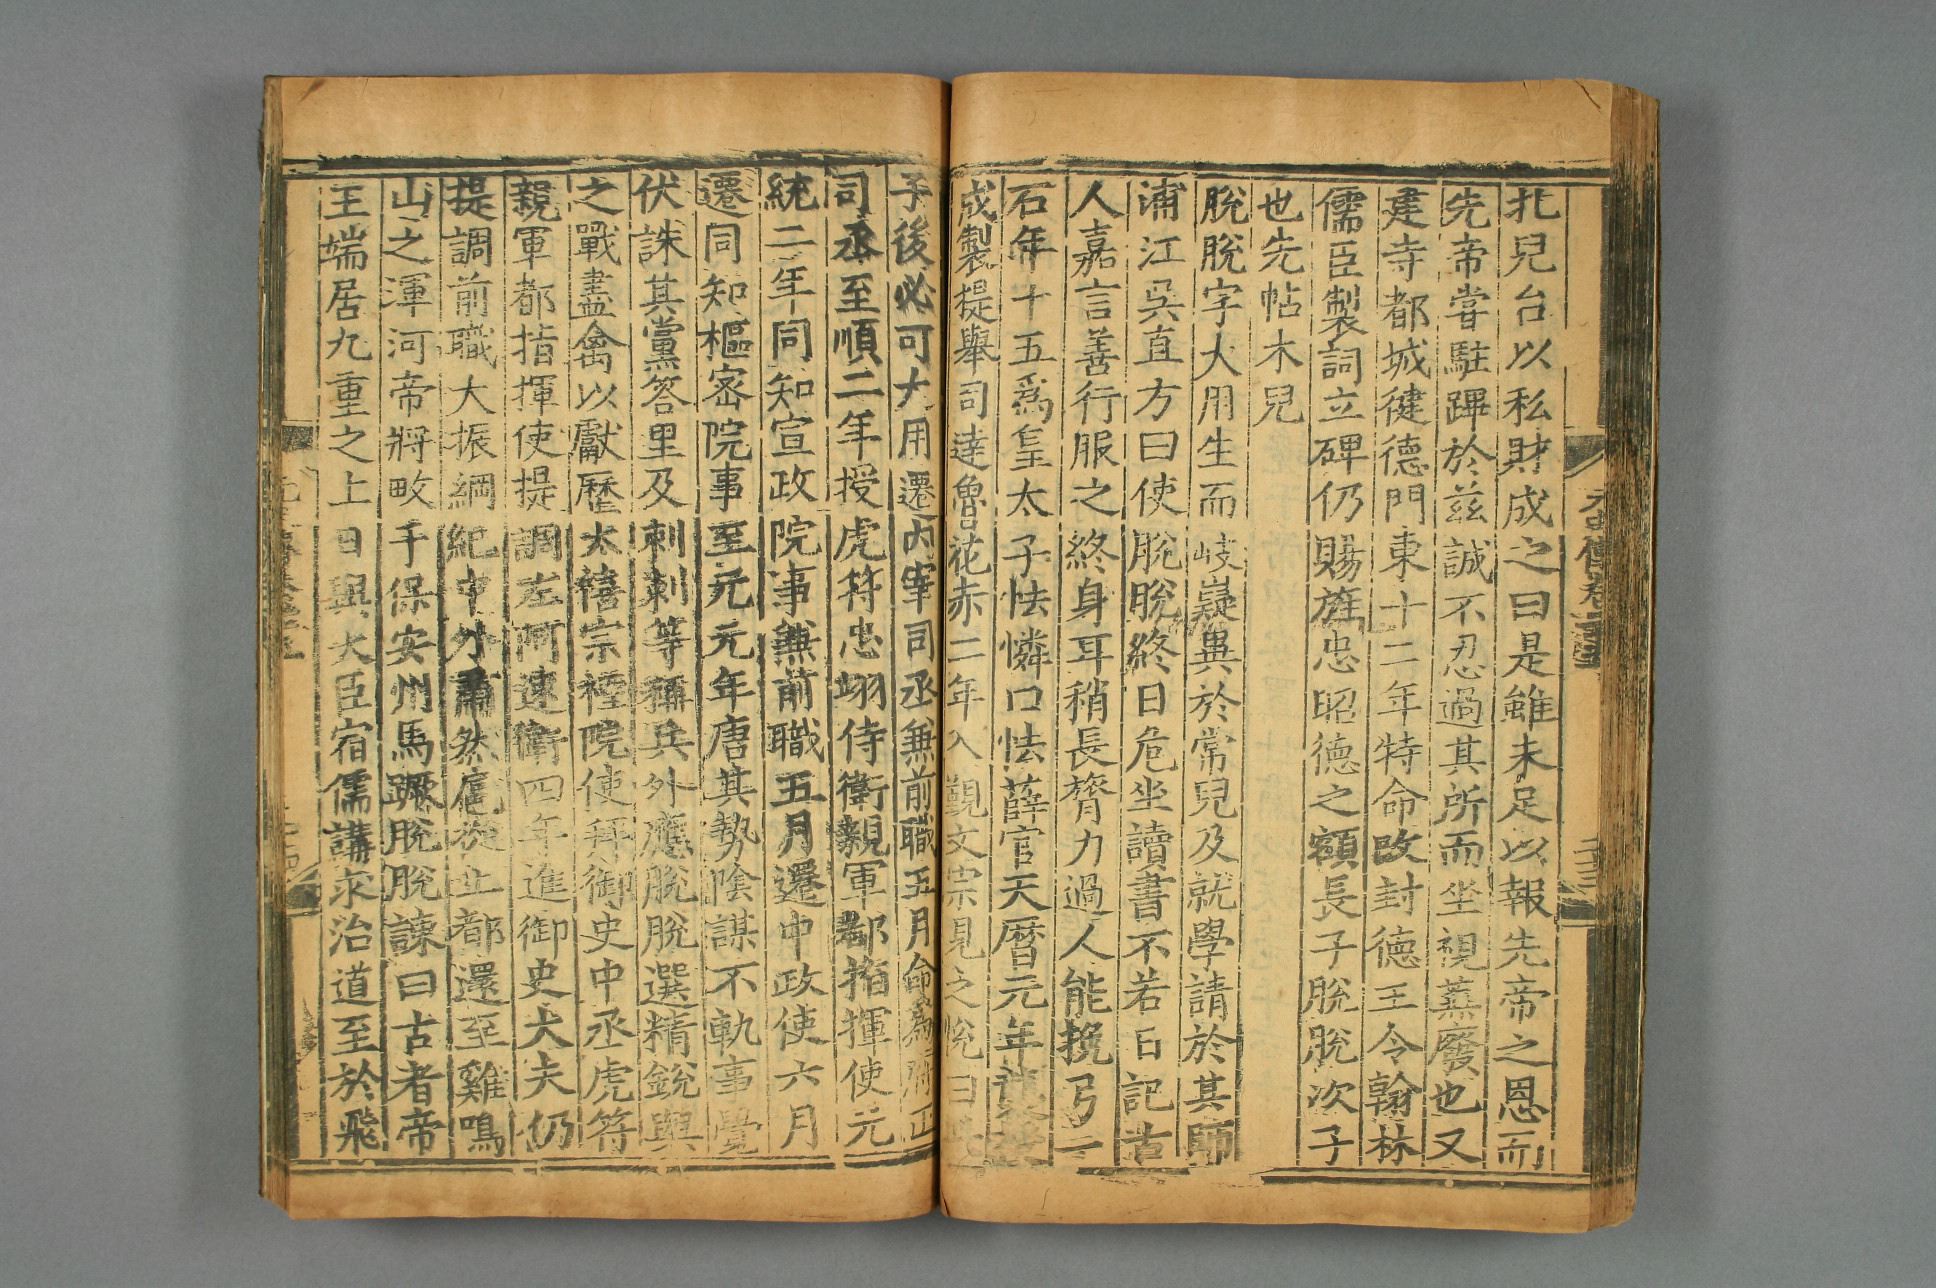 北兒台以私財成之曰是雖未足以報先帝之恩而
先帝嘗駐蹕於茲誠不忍過其所而坐視蕪廢也又
建寺都城健德門東十二年特命改封德王令翰林
儒臣製詞立碑仍賜旌忠昭德之額長子脫脫次子
也先帖木兒
脫脫字大用生而岐嶷異於常兒及就學請於其師
浦江吳直方曰使脫脫終日危坐讀書不若日記古
人嘉言善行服之終身耳稍長膂力過人能挽弓一
石年十五爲皇太子怯憐口怯薛官天曆元年襲授
成製提舉司達魯花赤二年入覲文宗見之悅曰此
子後必可大用遷內宰司丞兼前職五月命爲府正
司丞至順二年授虎符忠翊侍衛親軍都指揮使元
統二年同知宣政院事兼前職五月遷中政使六月
遷同知樞密院事至元元年唐其勢陰謀不軌事覺
伏誅其黨答里及剌剌等稱兵外應脫脫選精銳與
之戰盡禽以獻歷太禧宗禋院使拜御史中丞虎符
親軍都指揮使提調左阿速衛四年進御史大夫仍
提調前職大振綱紀中外肅然扈從上都還至雞鳴
山之渾河帝將畋于保安州馬蹶脫脫諫曰古者帝
王端居九重之上日與大臣宿儒講求治道至於飛